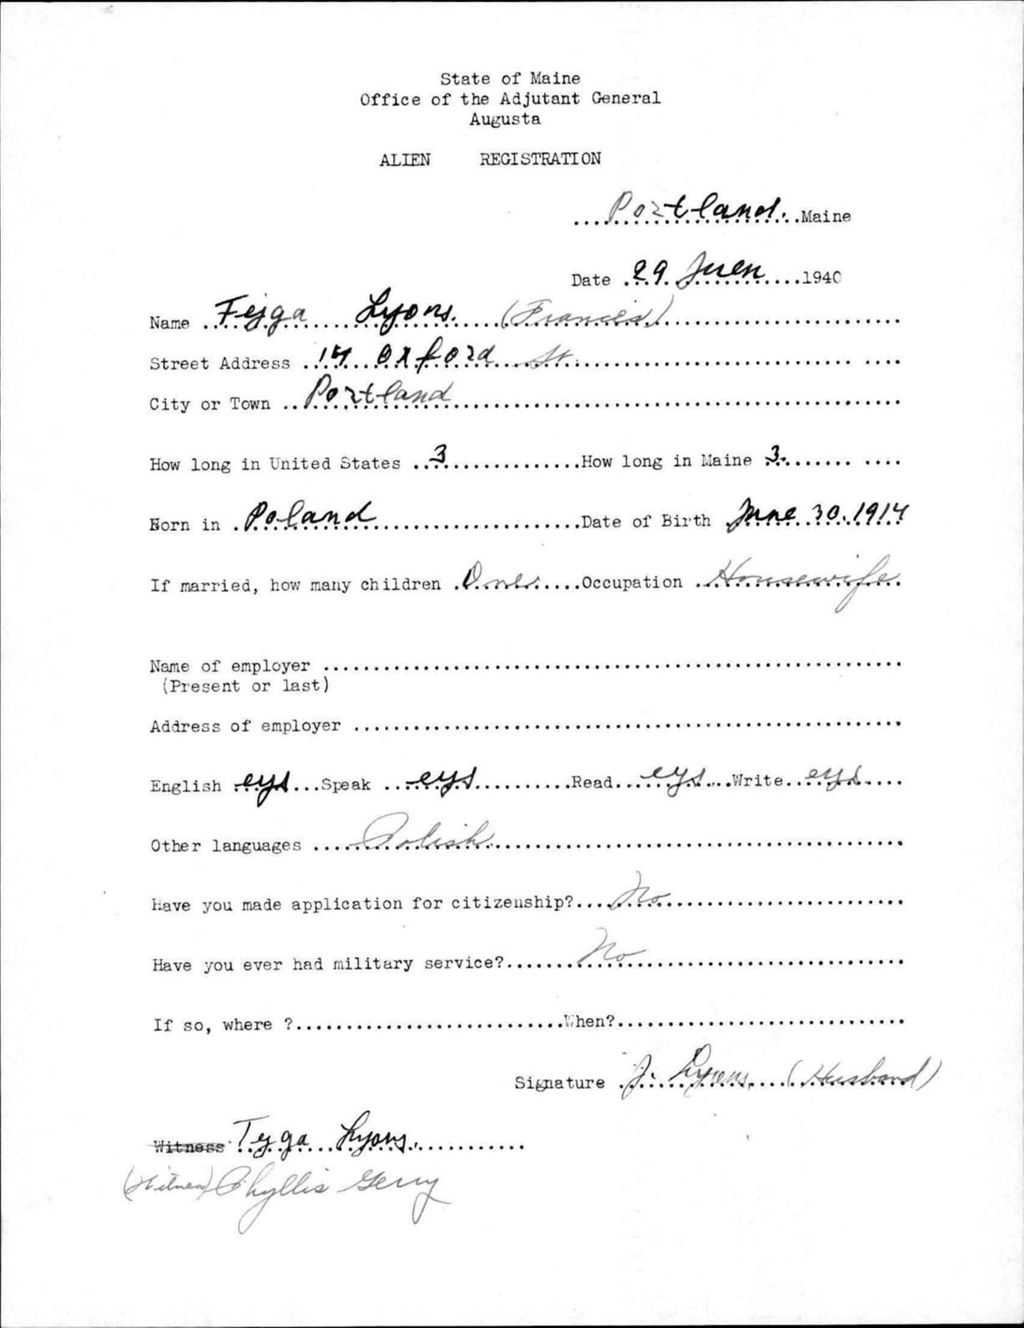 State of Maine
Office of the Adjutant General
Augusta
ALIEN REGISTRATION
Portland. Maine
Date 29 Juen 1940
Name Fejga Lyons. (Francis)
Street Address 17 Oxford St.
City or Town Portland
How long in United States 3 How long in Maine 3.
Born in Poland Date of Birth June 30.1914
If married, how many children One Occupation Housewife
Name of employer
(Present or last)
Address of employer
English eys Speak eys Read eys Write eys
Other languages Polish.
Have you made application for citizenship? No
Have you ever had military service? No
If so, where ? When?
Signature J. Lyons. (Husband)
Witness Tejga Lyons.
(Witness) Phyllis Gerry